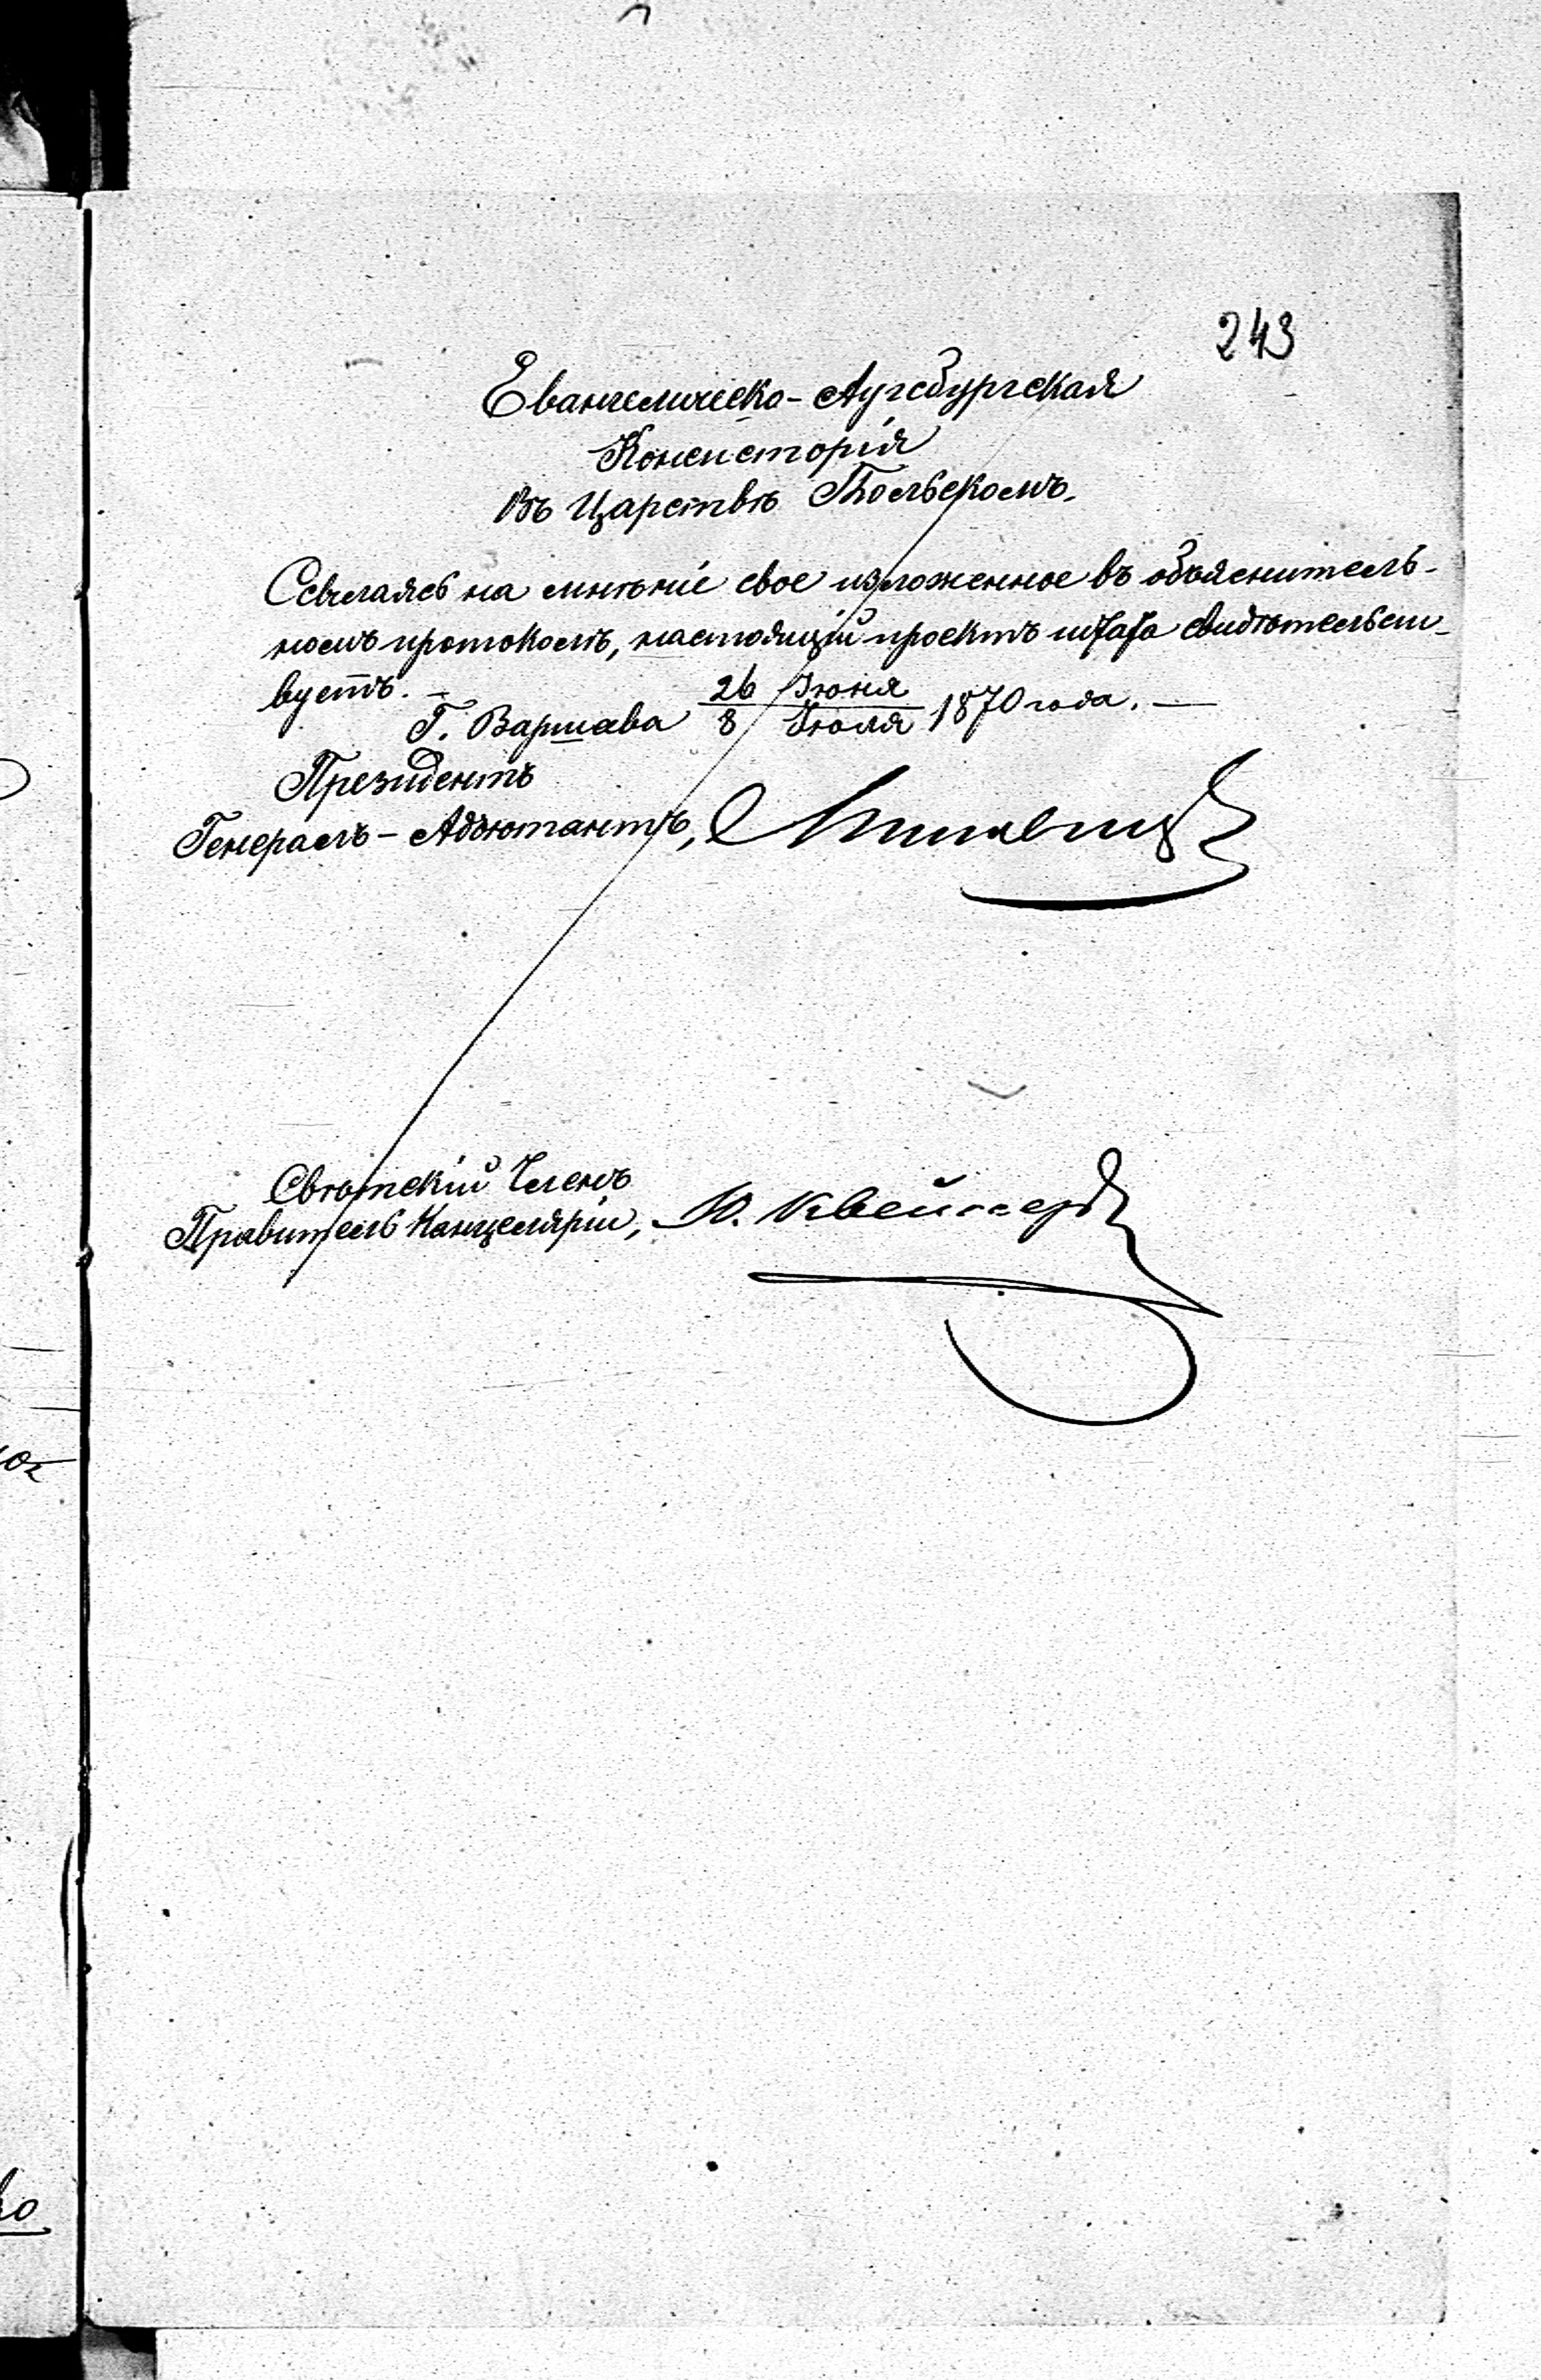 243
Евангелическо-Аугсбургская
Консисторія
Въ Царствѣ Польскомъ.
Ссылаясь на мнѣніе свое изложенное въ объяснитель-
номъ протоколѣ, настоящій проектъ штата свидѣтельст-
вуетъ. —
Г. Варшава 26 Іюня / 8 Іюля 1870 года. —
Президентъ
Генералъ-Адъютантъ,
Свѣтскій Членъ
Правитель Канцеляріи, Ю.